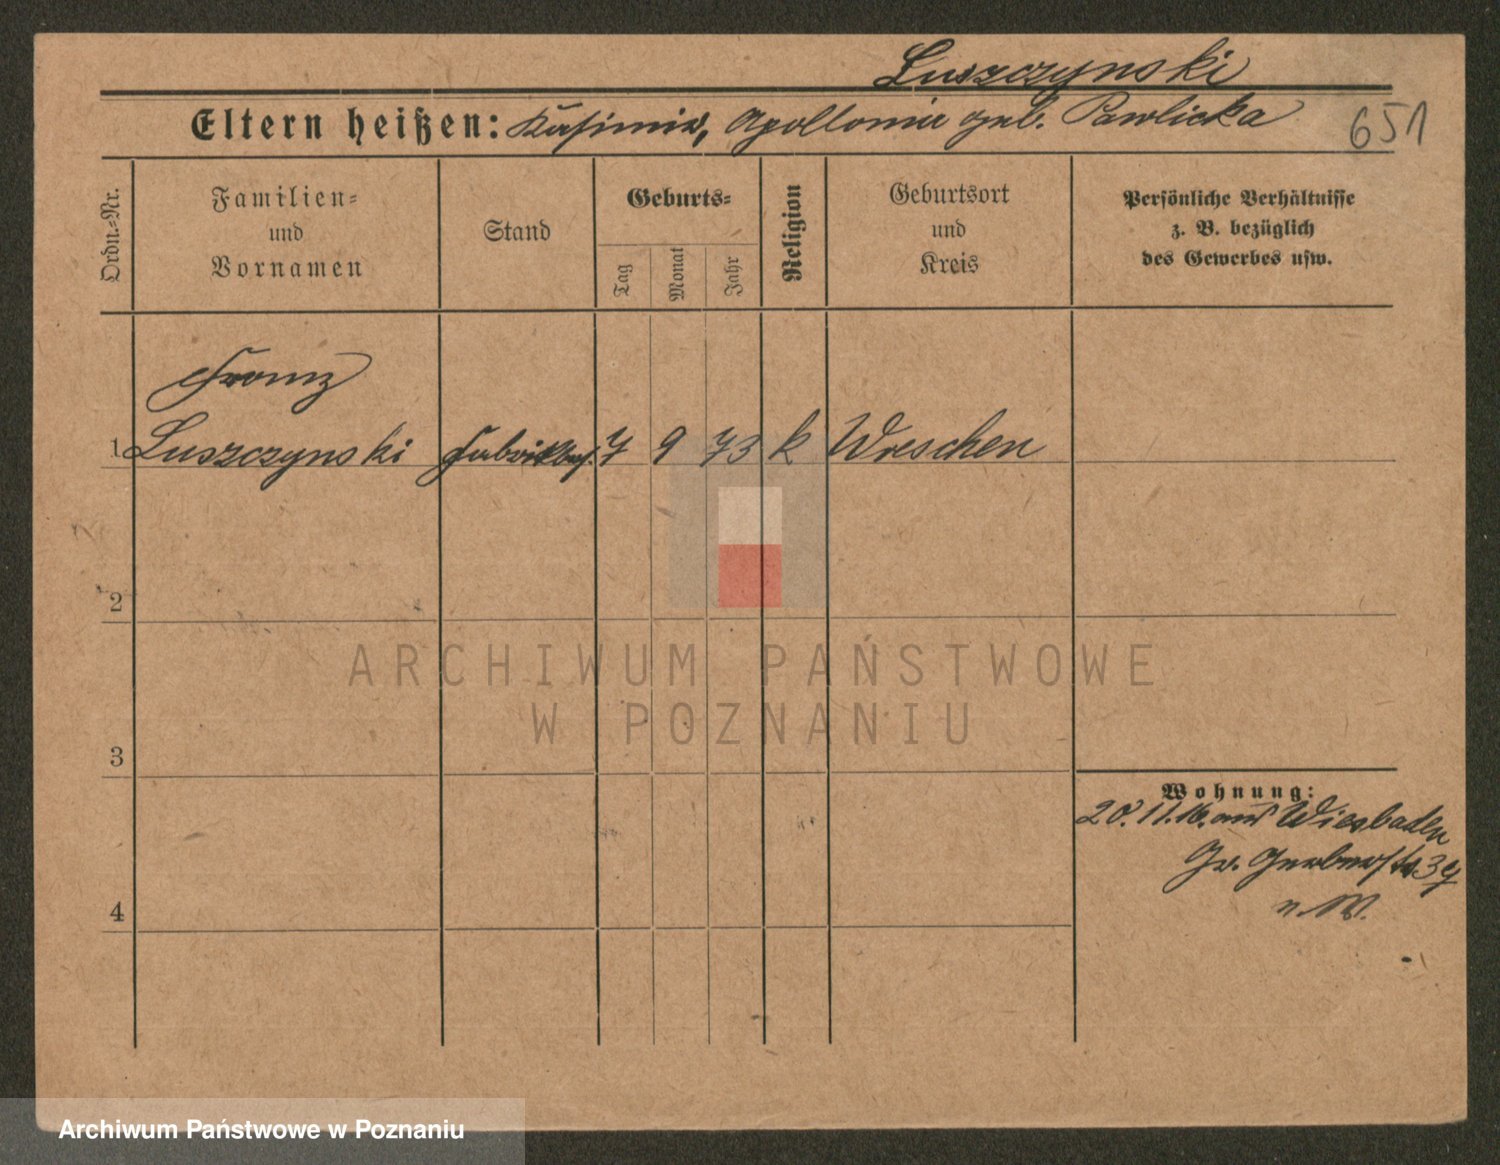 Luszczynski
Eltern heißen: Kasimir, Apollonia geb. Pawlicka
651
Ordn.=Nr.
Familien=
und
Vornamen
Stand
Geburts=
Tag
Monat
Jahr
Religion
Geburtsort
und
Kreis
Persönliche Verhältnisse
z. B. bezüglich
des Gewerbes usw.
Franz
1 Luszczynski Fabrikbes. 7 9 73 k Wreschen
2
ARCHIWUM PAŃSTWOWE
W POZNANIU
3
Wohnung:
20.11.16. aus Wiesbaden
Gr. Gerberstr 39
4
Archiwum Państwowe w Poznaniu